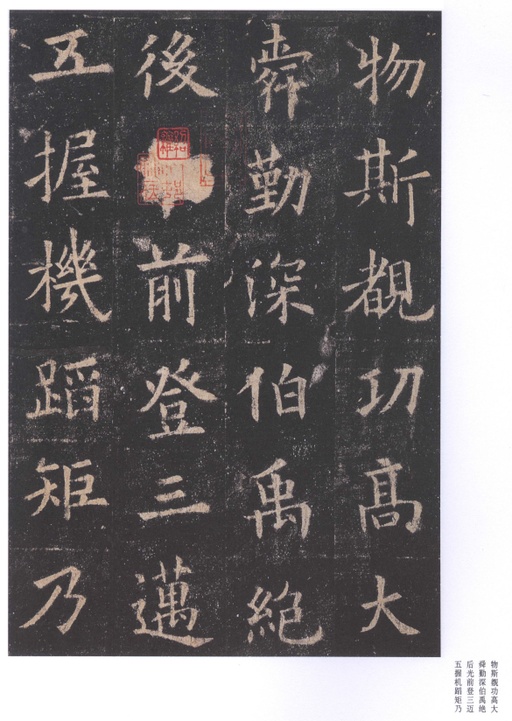 物斯覩功高大
舜勤深伯禹絶
後前登三邁
五握機蹈矩乃
物斯觀功高大
舜勤深伯禹绝
后光前登三迈
五握机蹈矩乃